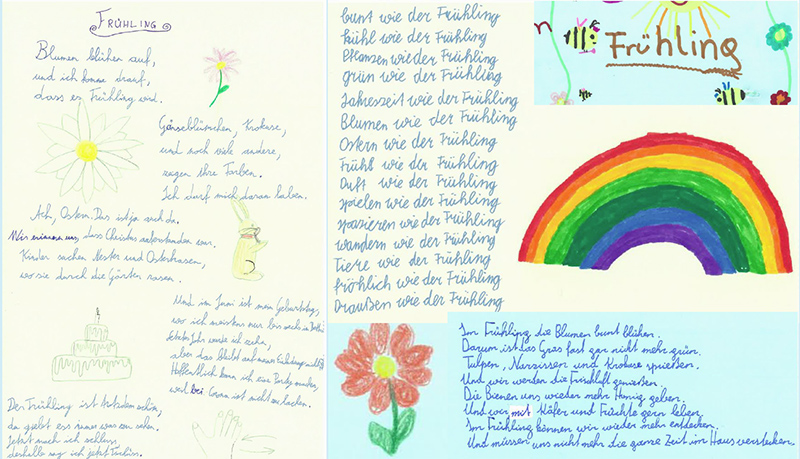 FRÜHLING
Blumen blühen auf,
und ich komme drauf,
dass es Frühling wird.
Gänseblümchen, Krokusse,
und noch viele andere,
zeigen ihre Farben.
Ich darf mich daran laben.
Ach, Ostern. Das ist ja auch da.
Wir erinnern uns, dass Christus auferstanden war.
Kinder suchen Nester und Osterhasen,
wo sie durch die Gärten rasen.
Und im Juni ist mein Geburtstag,
wo ich meistens nur bin
Letztes Jahr wurde ich zehn,
aber das bleibt auf
Hoffentlich kann ich eine Party machen,
weil bei Corona ist nicht zu lachen.
Der Frühling ist trotzdem schön,
da gibt es immer was zu sehen.
Jetzt mach ich Schluss,
deshalb sag ich jetzt Tschüss.
bunt wie der Frühling
kühl wie der Frühling
Pflanzen wie der Frühling
grün wie der Frühling
Jahreszeit wie der Frühling
Blumen wie der Frühling
Ostern wie der Frühling
Früh wie der Frühling
Duft wie der Frühling
spielen wie der Frühling
spazieren wie der Frühling
wandern wie der Frühling
Tiere wie der Frühling
fröhlich wie der Frühling
Draußen wie der Frühling
Frühling
Im Frühling die Blumen bunt blühen.
Darum ist das Gras fast gar nicht mehr grün.
Tulpen, Narzissen und Krokusse sprießen.
Und wir werden die Frischluft genießen.
Die Bienen uns wieder mehr Honig geben.
Und wir mit Käfer und Früchte gern leben.
Im Frühling können wir wieder mehr entdecken.
Und müssen uns nicht mehr die ganze Zeit im Haus verstecken.